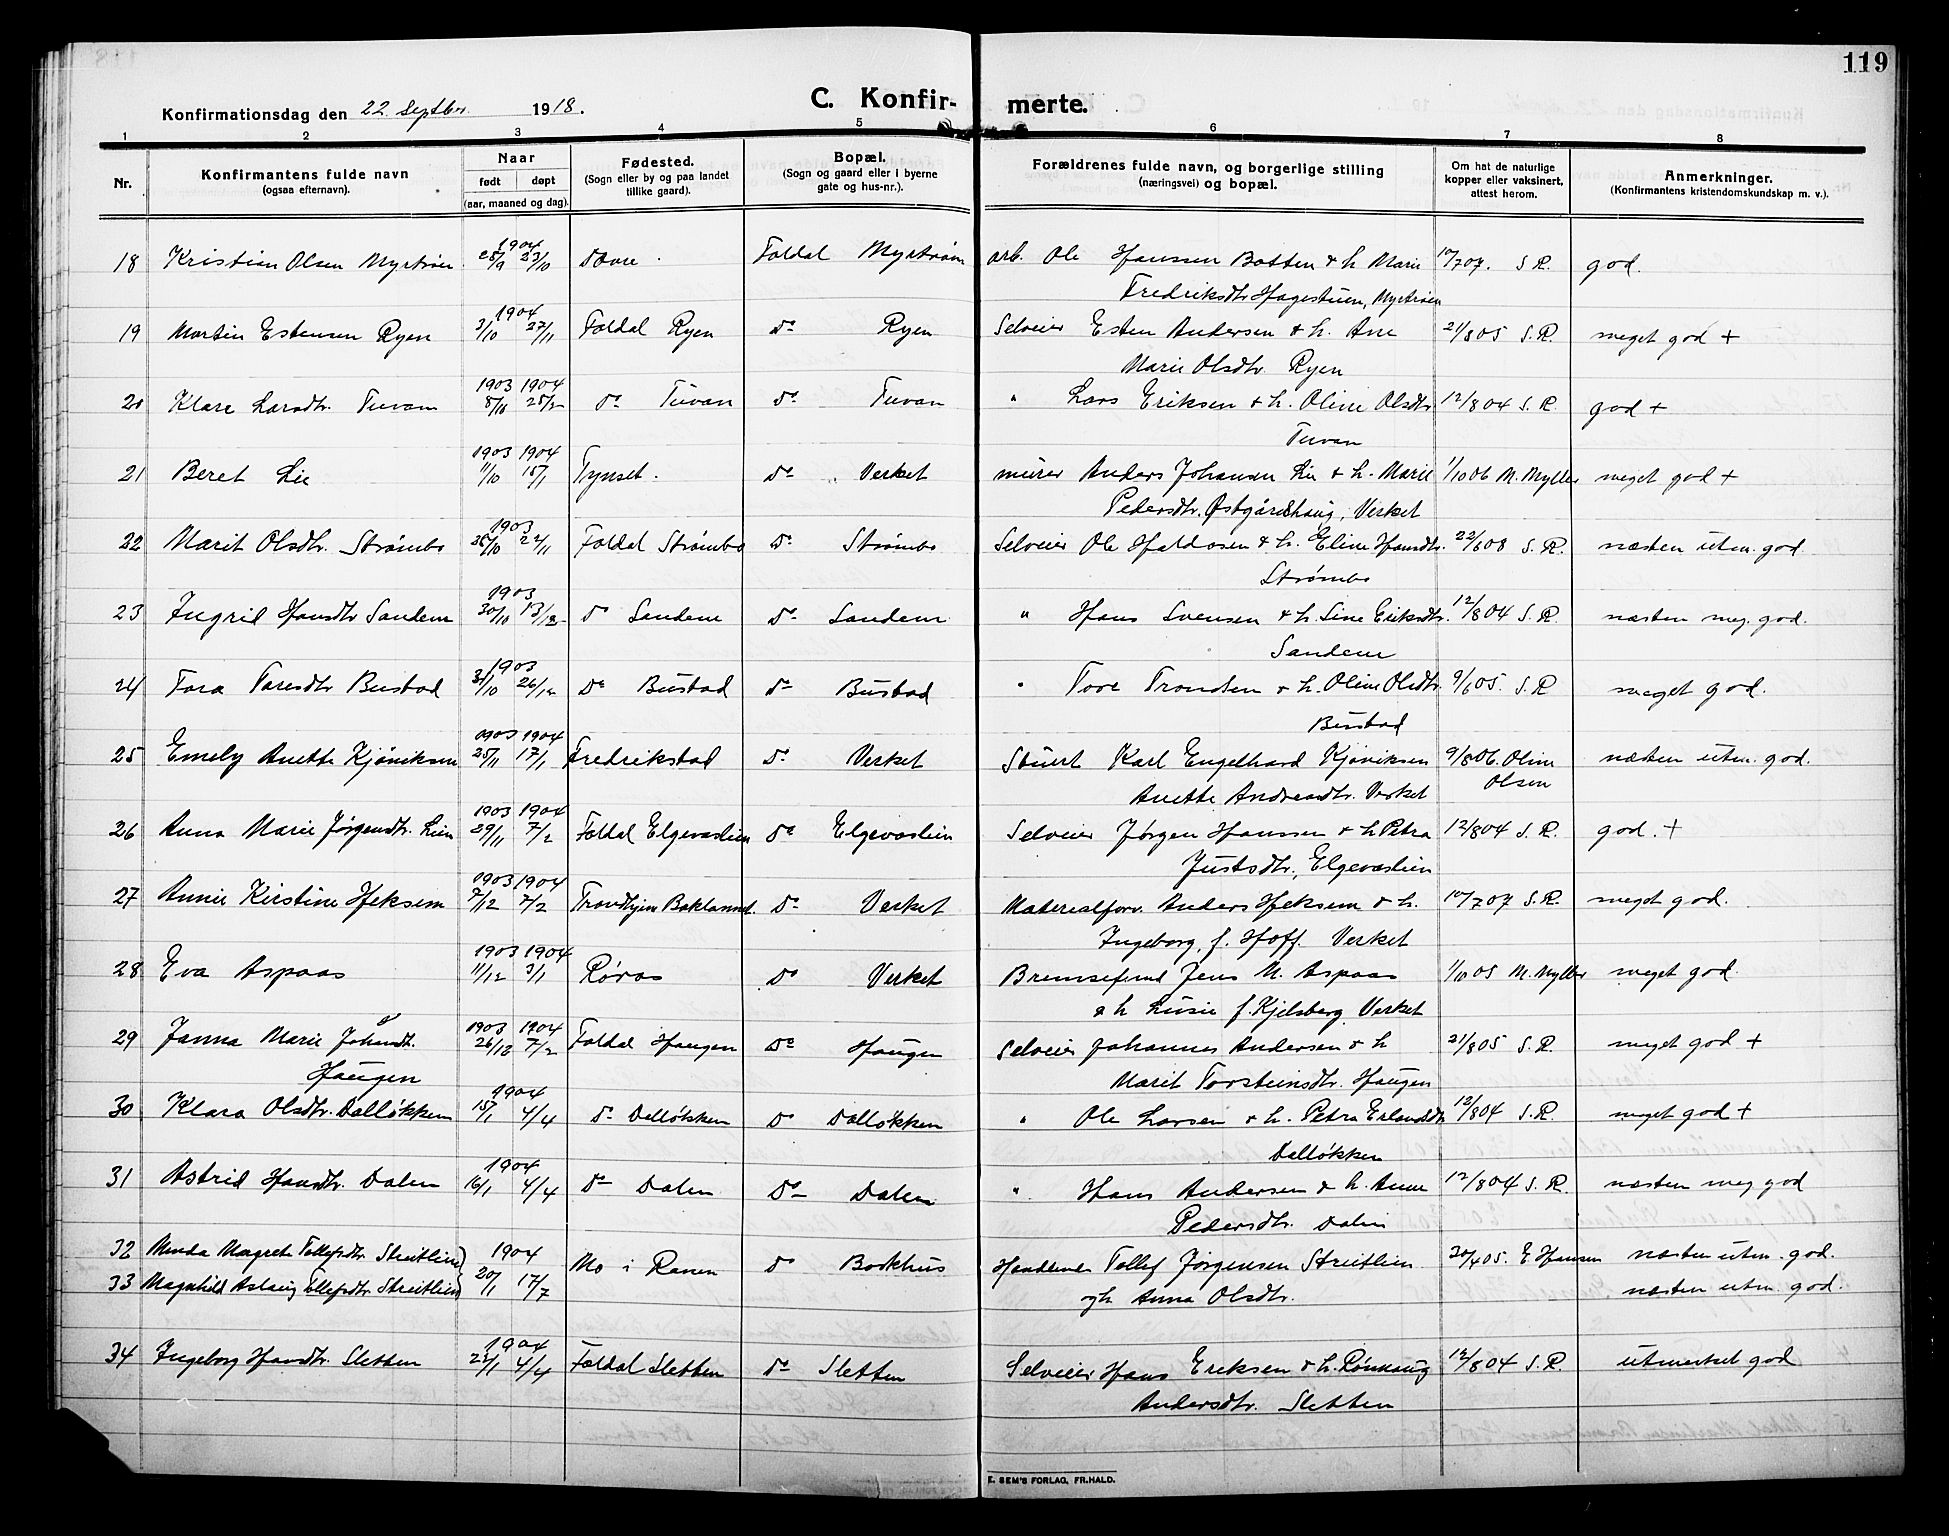 119
Konfirmationsdag den 22. Septbr. 1918.
C. Konfir- merte.
1 2 3 4 5 6 7 8
Nr.
Konfirmantens fulde navn
(ogsaa efternavn).
Naar
født døpt
(aar, maaned og dag).
Fødested.
(Sogn eller by og paa landet
tillike gaard).
Bopæl.
(Sogn og gaard eller i byerne
gate og hus-nr.).
Forældrenes fulde navn, og borgerlige stilling
(næringsvei) og bopæl.
Om hat de naturlige
kopper eller vaksinert,
attest herom.
Anmerkninger.
(Konfirmantens kristendomskundskap m. v.).
1904
18 Kristian Olsen Myrtrøen 25/9 23/10 Dovre. Foldal Myrtrøen arb. Ole Hanssen Botten & h. Marie 10/7 07. S. R. god.
Fredriksdtr. Hagestuen, Myrtrøen
1904
19 Martin Estensen Ryen 3/10 27/11 Foldal Ryen Do Ryen Selveier Esten Andersen & h. Ane 21/8 05 S. R. meget god +
Marie Olsdtr. Ryen
1903 1904
20 Klare Larsdtr. Tuvan 8/10 25/2 Do Tuvan Do Tuvan " Lars Eriksen & h. Oline Olsdtr. 12/8 04 S. R. god +
Tuvan
1903 1904
21 Beret Lie 11/10 15/1 Tynset. Do Verket murer Anders Johansen Lie & h. Marie 1/10 06 M. Myller meget god +
Pedersdtr. Østgårdshaug, Verket
1903
22 Marit Olsdtr. Strømbo 26/10 22/11 Foldal Strømbo Do Strømbo Selveier Ole Haldosen & h. Eline Hansdtr. 22/6 08 S. R. næsten utm. god.
Strømbo
1903
23 Ingrid Hansdtr. Sandem 30/10 13/12 Do Sandem Do Sandem " Hans Svensen & h. Line Eriksdtr. 12/8 04 S. R. næsten meg. god.
Sandem
1903
24 Tora Toresdtr Bustad 31/10 26/12 Do Bustad Do Bustad " Tore Trondsen & h. Oline Olsdtr. 9/6 05. S. R meget god.
Bustad
1903 1904
25 Emely Anette Kjøniksen 25/11 17/1 Fredrikstad Do Verket Stuert Karl Engelhard Kjøviksen 9/8 06. Oline næsten utm. god.
Anette Andreasdtr. Verket Olsen
1903 1904
26 Anna Marie Jørgensdtr. Lien 29/11 7/2 Foldal Elgevaslien Do Elgevaslien Selveier Jørgen Hanssen & h Petra 12/8 04 S. R. god. +
Justsdtr., Elgevaslien
1903 1904
27 Annie Kirstine Heksem 7/12 7/2 Trondhjem Baklannet. Do Verket Materialforv. Anders Heksem & h. 10/7 07 S. R. meget god.
Ingeborg, f. Hoff. Verket
1903 1904
28 Eva Aspaas 11/12 3/1 Røros Do Verket Bremsefmd Jens M. Aspaas 1/10 05 M. Myller meget god.
& h Lusie f. Kjelsberg Verket
1903 1904
29 Janna Marie Johansdt. 26/12 7/2 Foldal Haugen Do Haugen Selveier Johannes Andersen & h 21/8 05 S. R. meget god +
Haugen Marit Torsteinsdtr. Haugen
1904
30 Klara Olsdtr. Dalløkken 15/1 4/4 Do Dalløkken Do Dalløkken " Ole Larsen & h. Petra Erlandsdtr 12/8 04 S. R. meget god +
Dalløkken
1904
31 Astrid Hansdtr. Dalen 16/1 4/4 Do Dalen Do Dalen " Hans Andersen & h. Anne 12/8 04 S. R. næsten meg god
Pedersdtr. Dalen
32 Minda Margrete Tollefsdtr Streitlien 1904 Mo i Ranen Do Borkhus Handelsmd Tollef Jørgensen Streitlien 30/4 05. E Hansen næsten utm. god.
33 Magnhild Aslaug Tollefsdtr Streitlien 20/1 17/7 og h. Anna Olsdtr. næsten utm. god.
1904
34 Ingeborg Hansdtr. Sletten 22/1 4/4 Foldal Sletten Do Sletten Selveier Hans Eriksen & h. Rønnaug 12/8 04 S. R. utmerket god
Andersdtr. Sletten
E. SEM'S FORLAG, FR.HALD.